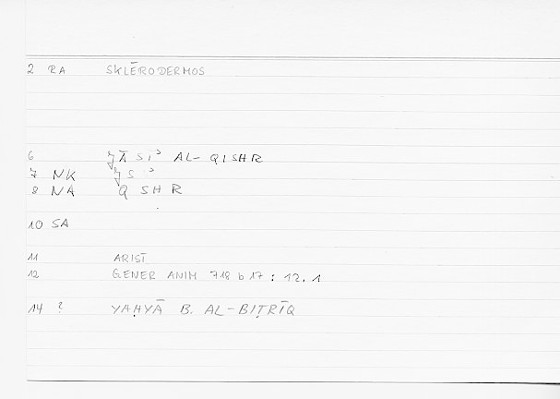 2 RA SKLĒRODERMOS
6 JĀSIʾ AL-QISHR
7 NK JSʾ
8 NA QSHR
10 SA
11 ARIST
12 GENER ANIM 718 b 17 : 12.1
14 ? YAḤYĀ B. AL-BIṬRĪQ